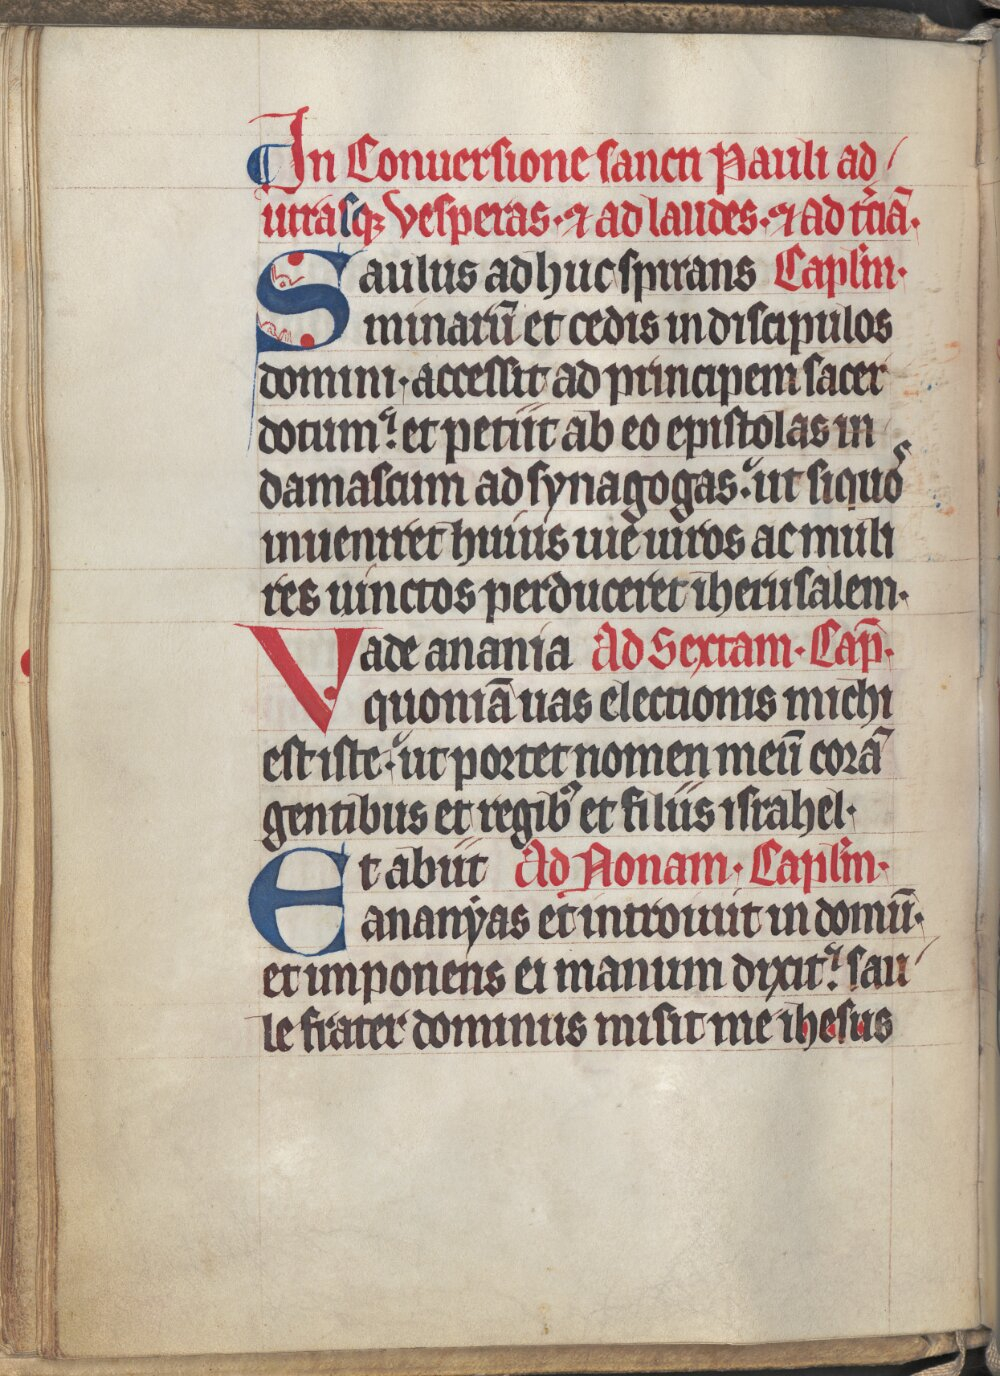 In Conuersione sancti Pauli ad
utrasqꝫ vesperas· ⁊ ad laudes· ⁊ ad t̾ciā·
Saulus adhuc spirans Capl̅m·
minarū et cedis in discipulos
domini· accessit ad principem sacer
dotum: et petiit ab eo epistolas in
damascum ad synagogas: ut siquos
inueniret huius uie uiros ac muli
res uinctos perduceret iherusalem·
Vade anania Ad Sextam· Cap̄·
quoniā uas electionis michi
est iste: ut portet nomen meū corā
gentibus et regibꝰ et filiis israhel·
Et abiit Ad Nonam· Capl̅m·
ananyas et introiuit in domū·
et imponens ei manum dixit: sau
le frater dominus misit me ihesus